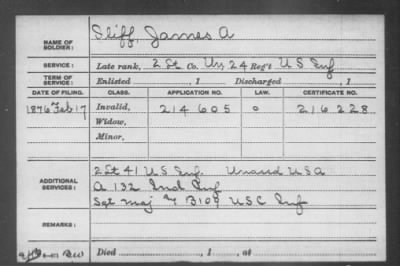 NAME OF SOLDIER: Sliff, James A
SERVICE: Late rank, 2 Lt Co. Un, 24 Reg't U S Inf
TERM OF SERVICE: Enlisted , 1 Discharged , 1
DATE OF FILING. CLASS. APPLICATION NO. LAW. CERTIFICATE NO.
1876 Feb 17 Invalid, 214605 o 216228
Widow,
Minor,
ADDITIONAL SERVICES: 2 Lt 41 U S Inf. Unassd U S A
A 132 Ind Inf
Sgt Maj & B 109 U S C Inf
REMARKS:
Died , 1 , at